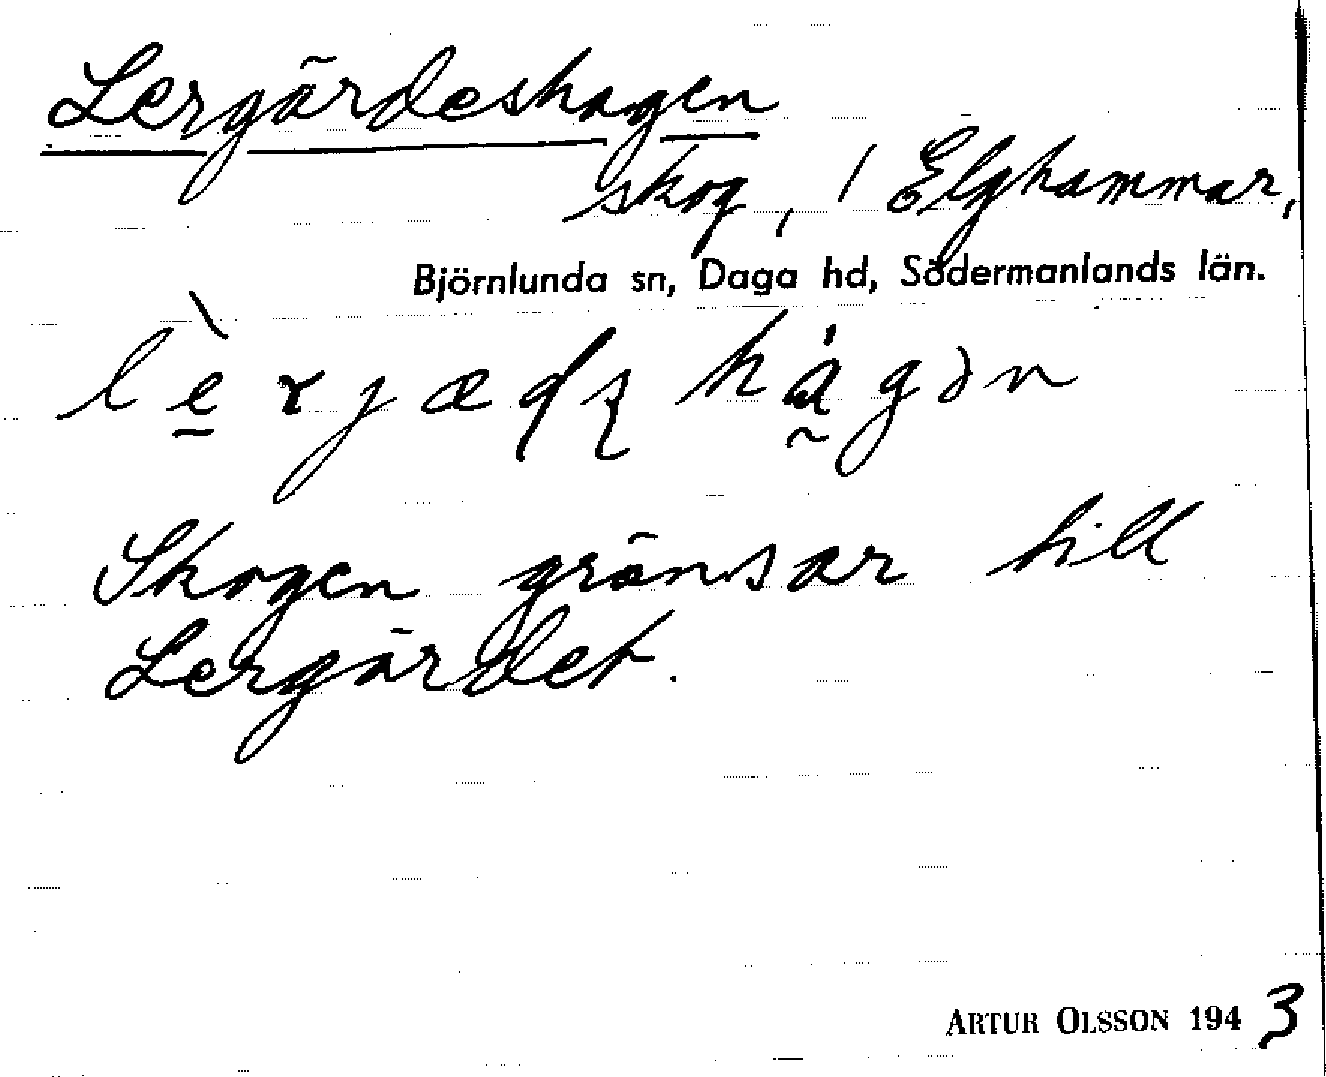 Lergärdeshagen
skog, / Elghammar,
Björnlunda sn, Daga hd, Södermanlands län.
lè̱rjæḍʂ hå̰gən
Skogen gränsar till
Lergärdet.
ARTUR OLSSON 1943